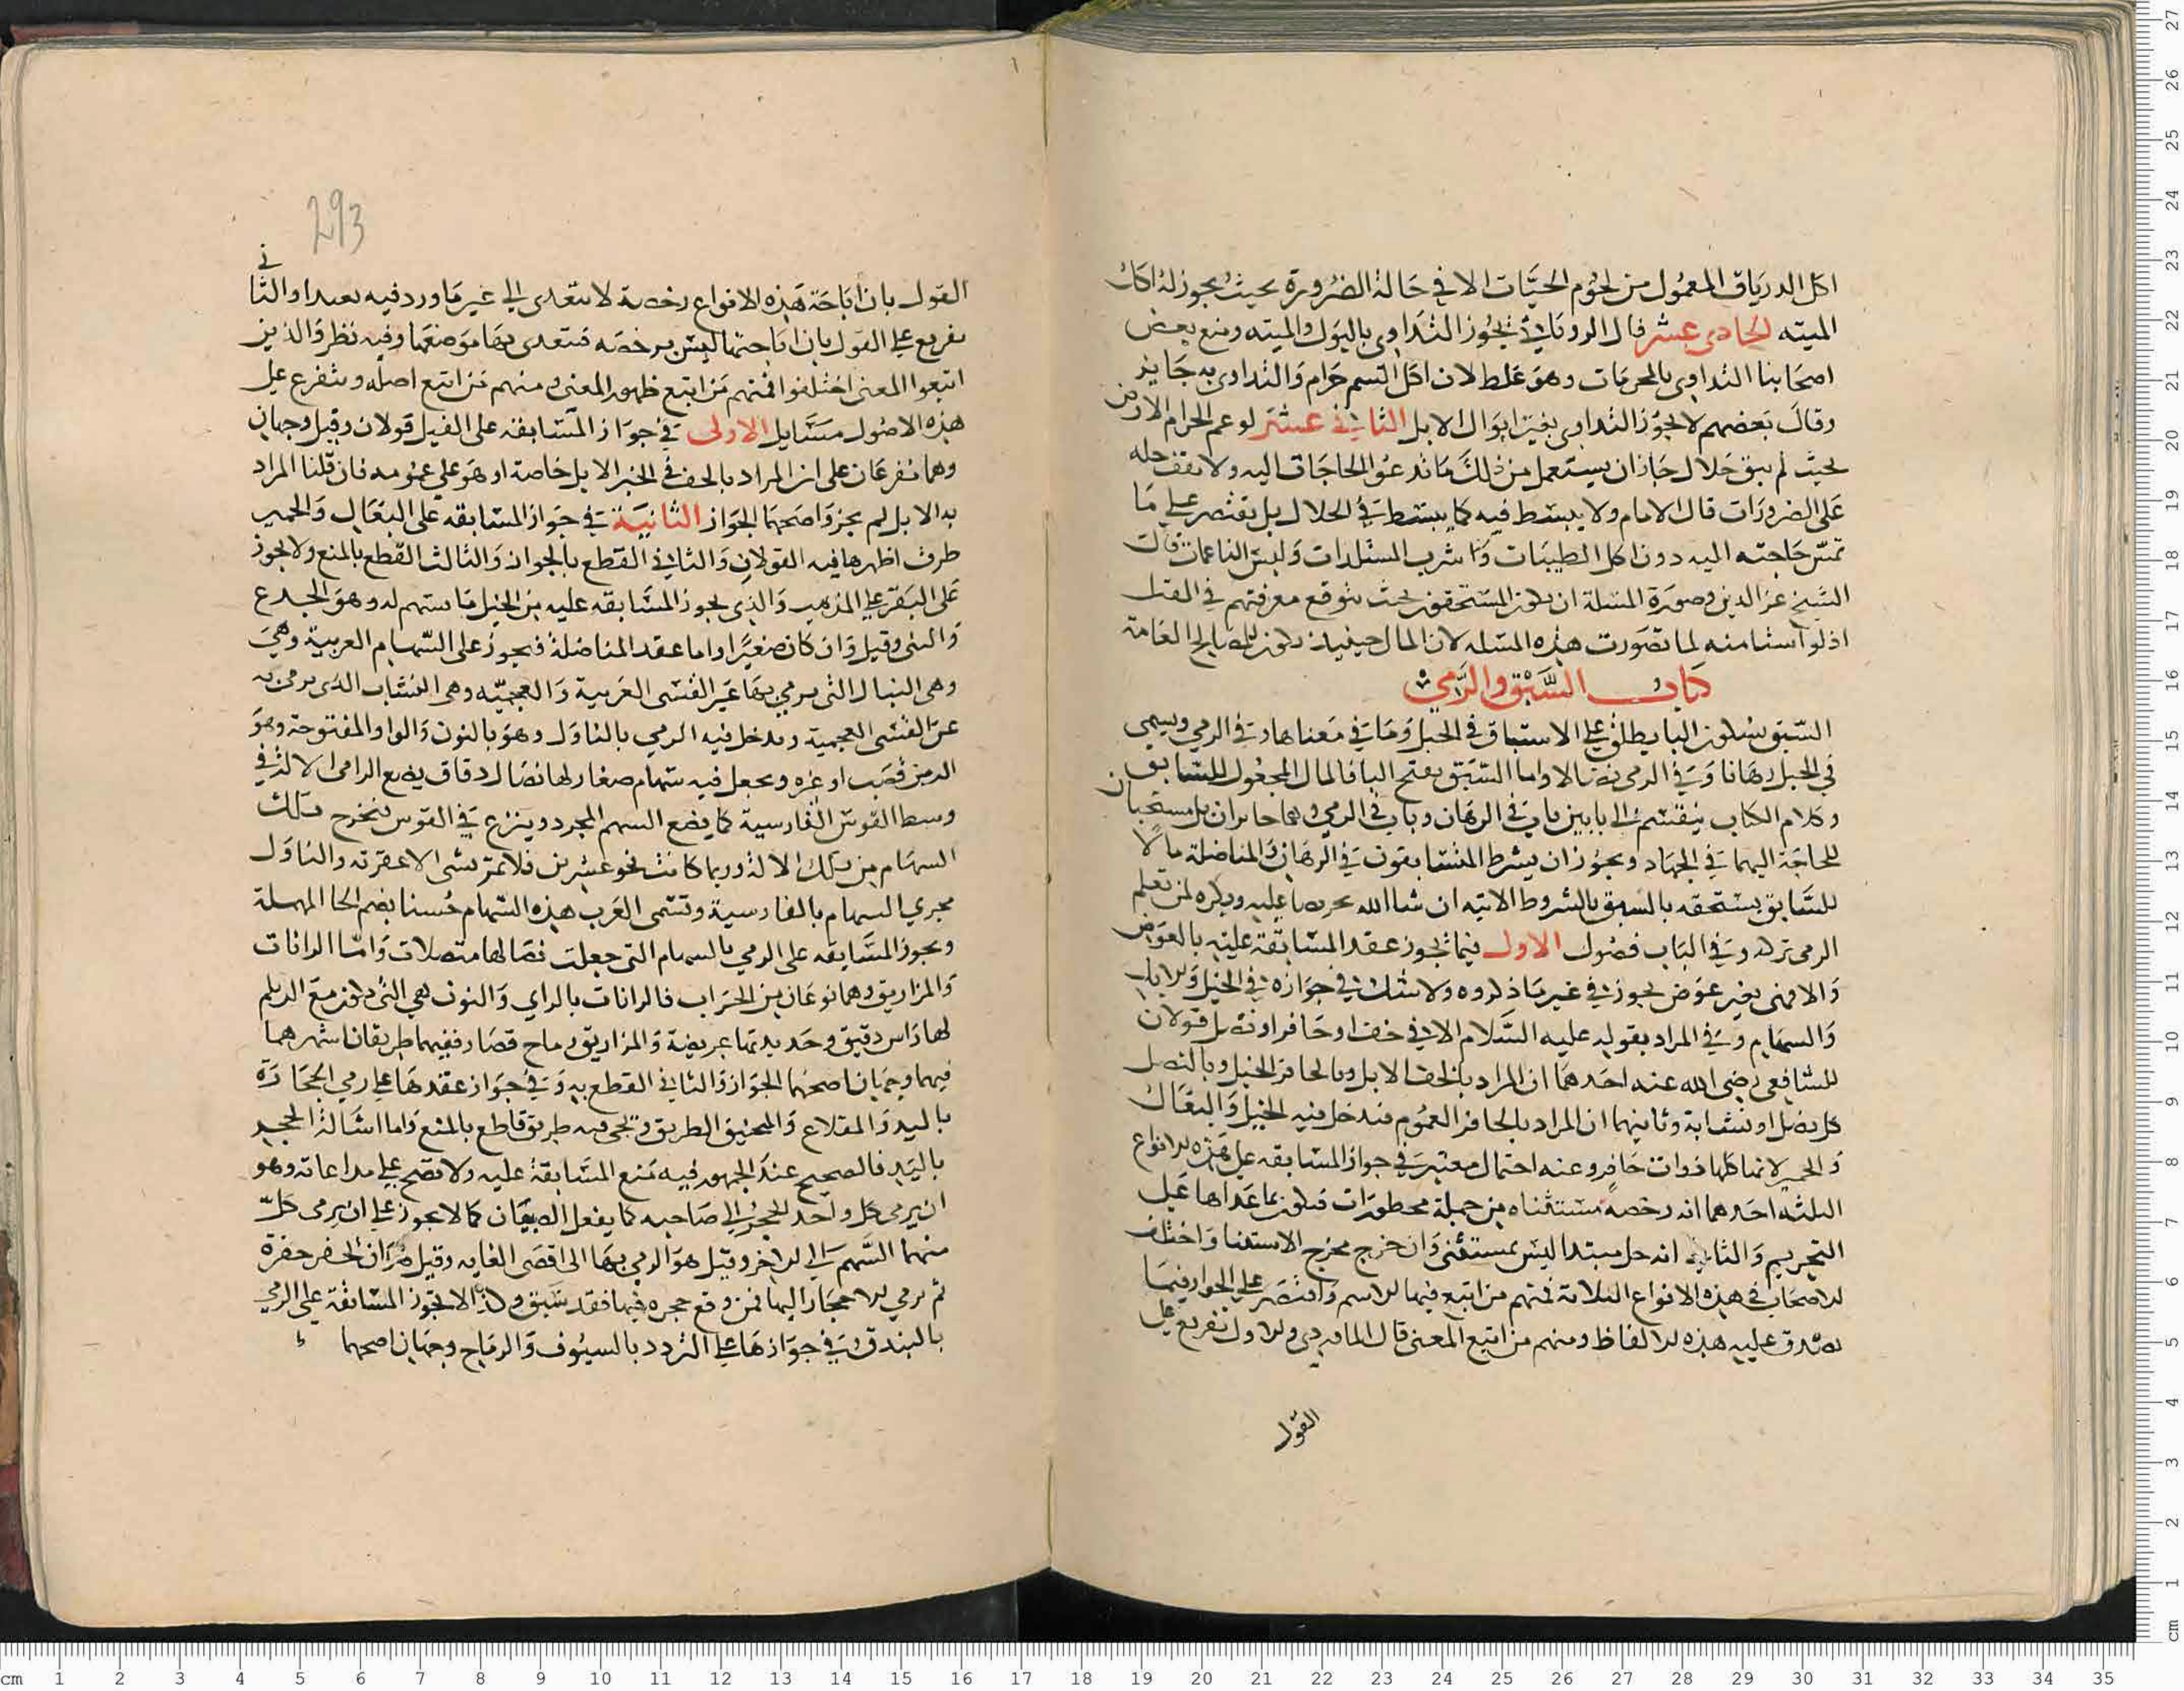 اكل الدرياق المعمول من لحوم الحيات الا في حالة الضرورة بحيث يجوز له اكل
الميته الحادي عشر قال الروياني يجوز التداوي بالبول والميته ومنع بعض
اصحابنا التداوي بالمحرمات وهو غلط لان اكل السم حرام والتداوي به جايز
وقال بعضهم لا يجوز التداوي بغير ابوال الابل الثاني عشر لو عم الحرام الارض
بحيث لم يبق حلال جاز ان يستعمل من ذلك ما تدعو الحاجات اليه ولا يقف حله
على الضرورات قال الامام ولا يبسط فيه كما يبسط في الحلال بل يقتصر على ما
تمس حاجته اليه دون اكل الطيبات و شرب المستلذات ولبس الناعمات قال
الشيخ عز الدين وصورة المسلة ان يكون المستحقون بحيث يتوقع معرفتهم في القبل
اذ لو ايسنا منه لما تصورت هذه المسله لان المال حينيذ يكون للمصالح العامة
كتاب السبق والرمي
السبق بسكون البا يطلق على الاستباق في الخيل وما في معناها وفي الرمي ويسمى
في الخيل رهانا وفي الرمي نضالا واما السبق بفتح البا فالمال المجعول للسابق
وكلام الكتاب ينقسم الى بابين باب في الرهان وباب في الرمي وهما جايزان بل مستحبان
للحاجة اليهما في الجهاد ويجوز ان يشرط المتسابقون في الرهان والمناضلة مالا
للسابق يستحقه بالسبق بالشروط الاتيه ان شا الله تحريضا عليه ويكره لمن تعلم
الرمي تركه وفي الباب فصول الاول فيما يجوز عقد المسابقة عليه بالعوض
والا فهي بغير عوض يجوز في غير ما ذكروه ولا شك في جوازه في الخيل والابل
والسهام وفي المراد بقوله عليه السلام الا في خف او حافر او نصل قولان
للشافعي رضي الله عنه احدهما ان المراد بالخف الابل وبالحافر الخيل وبالنصل
كل نصل او نشابة وثانيهما ان المراد بالحافر العموم فيدخل فيه الخيل والبغال
والحمير لانها كلها ذوات حافر وعنه احتمال معتبر في جواز المسابقه على هذه الانواع
الثلثه احدهما انه رخصه مستثناه من جملة محظورات فيكون ما عداها على
التحريم والثاني انه حل مبتدا ليس بمستثنى وان خرج مخرج الاستثنا واختلف
الاصحاب في هذه الانواع الثلاثة فمنهم من اتبع فيها الاسم واقتصر على الجواز فيما
يصدق عليه هذه الالفاظ ومنهم من اتبع المعنى قال الماوردي والاول تفريع على
القول
293
القول بان اباحة هذه الانواع رخصة لا تتعدى الى غير ما ورد فيه نصا والثاني
تفريع على القول بان اباحتها ليس برخصه فتتعدى بها موضعها وفيه نظر والذين
اتبعوا المعنى اختلفوا فمنهم من اتبع ظهور المعنى ومنهم من اتبع اصله ويتفرع على
هذه الاصول مسايل الاولى في جواز المسابقه على الفيل قولان وقيل وجهان
وهما يتفرعان على ان المراد بالخف في الخبر الابل خاصة او هو على عمومه فان قلنا المراد
به الابل لم يجز واصحهما الجواز الثانية في جواز المسابقه على البغال والحمير
طرق اظهرها فيه القولان والثاني القطع بالجواز والثالث القطع بالمنع ولا يجوز
على البقر على المذهب والذي يجوز المسابقه عليه من الخيل ما يسهم له وهو الجذع
والثني وقيل وان كان صغيرا واما عقد المناضلة فيجوز على السهام العربية وهي
وهي النبال التي يرمي بها عن القسي العربية والعجميه وهي النشاب الذي يرمى به
عن القسي العجمية ويدخل فيه الرمي بالناوك وهو بالنون والواو المفتوحة وهو
الة من قصب او غيره ويجعل فيه سهام صغار لها نصال دقاق يضع الرامي الالة في
وسط القوس الفارسية كما يضع السهم المجرد وينزع في القوس فتخرج تلك
السهام من تلك الالة وربما كانت نحو عشرين فلا تمر بشي الا عقرته والناوك
مجري السهام بالفارسية وتسمى العرب هذه السهام حسبنا بضم الحا المهملة
ويجوز المسابقه على الرمي بالسهام التي جعلت نصالها متصلات واما الرانات
والمزاريق وهما نوعان من الحراب فالرانات بالراي والنون هي التي تكون مع الديلم
لها راس دقيق وحديدتها عريضة والمزاريق رماح قصار ففيهما طريقان اشهرهما
فيهما وجهان اصحهما الجواز والثاني القطع به وفي جواز عقدها على رمي الحجارة
باليد والمقلاع والمنجنيق الطريق وتجي فيه طريق قاطع بالمنع واما اشالة الحجر
باليد فالصحيح عند الجمهور فيه منع المسابقة عليه ولا تصح على مداعاته وهو
ان يرمي كل واحد الحجر الى صاحبه كما يفعل الصبيان كما لا يجوز على ان يرمي كل
منهما السهم الى الاخر وقيل هو الرمي بها الى اقصى الغايه وقيل هو ان تحفر حفرة
ثم يرمي الاحجار اليها فمن وقع حجره فيها فقد سبق وكذا لا تجوز المسابقة على الرمي
بالبندق وفي جوازها على التردد بالسيوف والرماح وجهان اصحهما